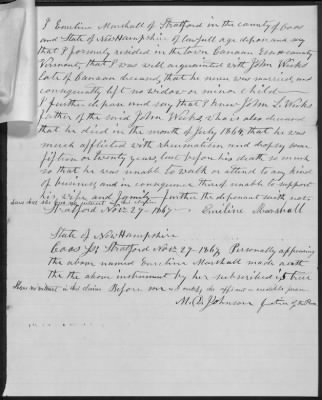 I Emeline Marshall of Stratford in the county of Coos
and State of New Hampshire of lawfull age depose and say
that I formerly resided in the town Canaan Essex county
Vermont, that I was well acquainted with John Weeks
late of Canaan deceased, that he never was married, and
consequently left no widow or minor child—
I further depose and say that I knew John S. Weeks
father of the said John Weeks who is also deceased
that he died in the month of July 1864 that he was
much afflicted with rheumatism and dropsy over
fifteen or twenty years, but before his death so much
so that he was unable to walk or attend to any kind
of business, and in consequence thereof unable to support
his wife and family further the deponent saith not
Stratford Nov. 27- 1867 Emeline Marshall
State of New Hampshire
Coos SS Stratford Nov. 27- 1867 Personally appearing
the above named Emeline Marshall made oath
the the above instrument by her subscribed is true
Have no interest in this claim Before me & certify the affiant a credible person
M. D. Johnson Justice of the Peace